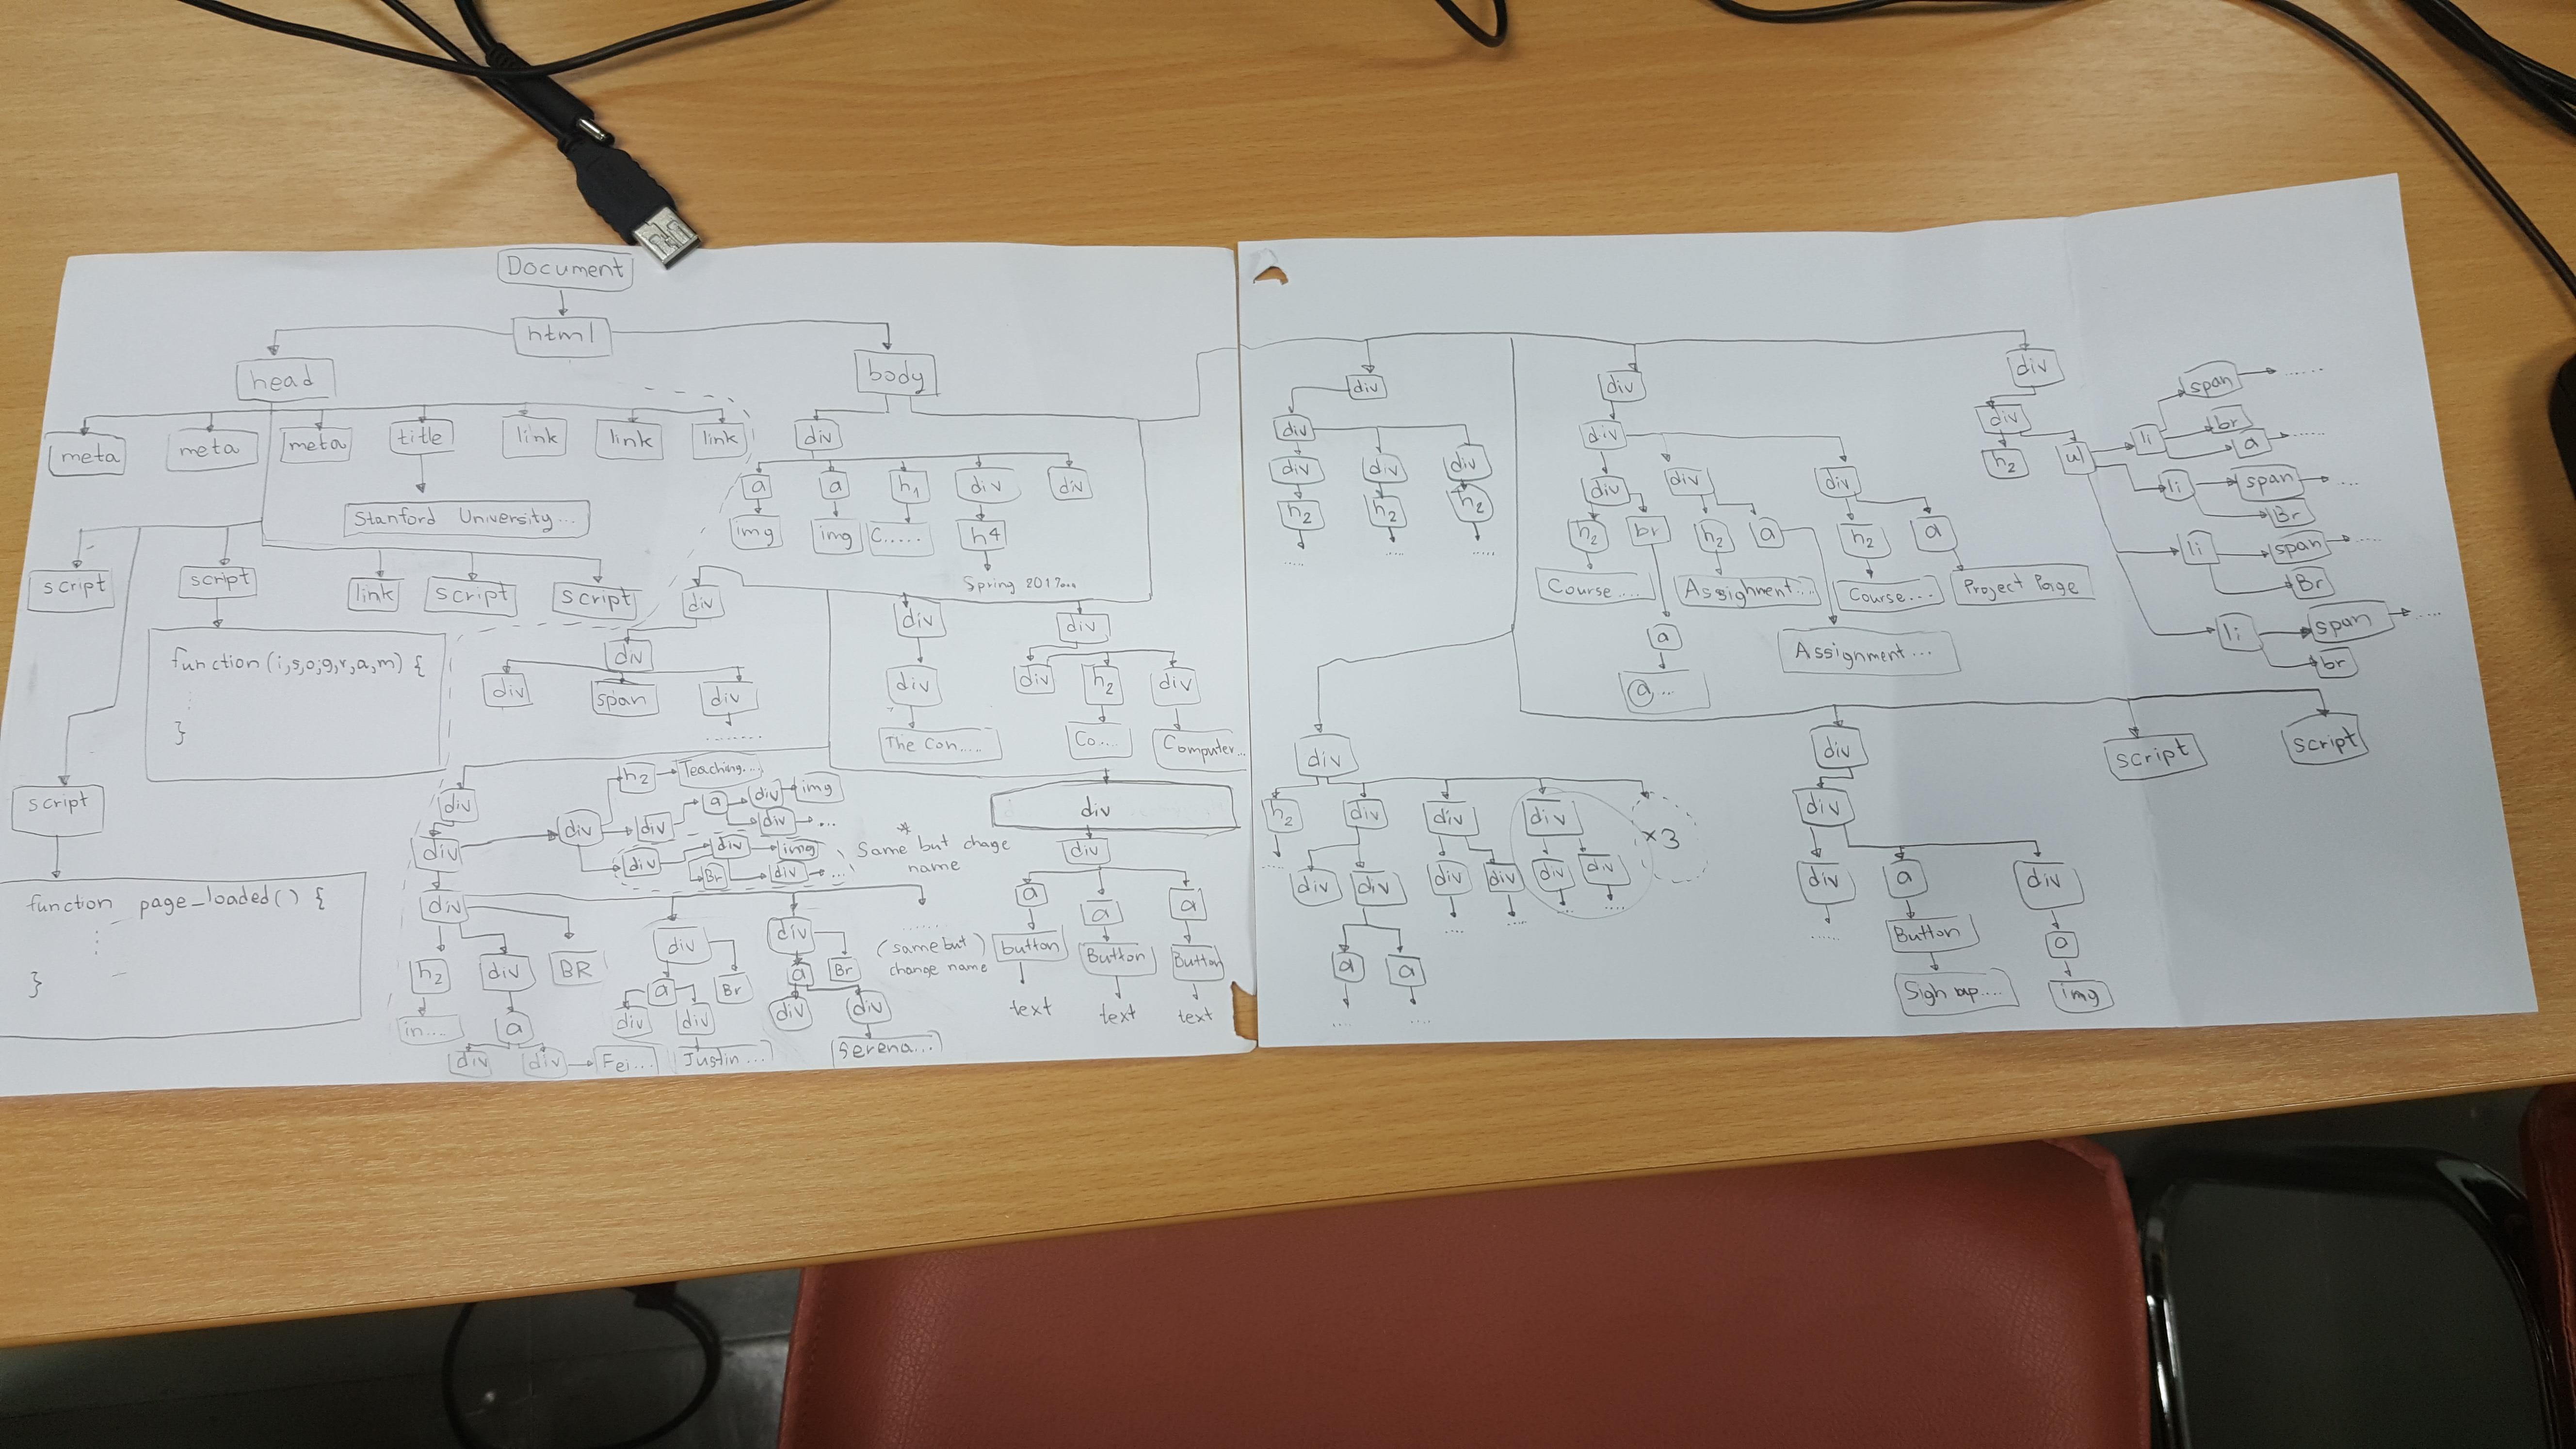 Document
html
head
body
meta
meta
meta
title
link
link
link
Stanford University...
script
script
link
script
script
function (i,s,o,g,r,a,m) {
}
script
function page_loaded() {
}
div
a
a
h1
div
div
img
img
C.....
h4
Spring 2017...
div
div
div
span
div
........
div
div
The Con.....
div
div
h2
div
Co....
Computer...
div
div
h2
Teaching...
div
div
a
div
img
div
...
div
div
img
Br
div
...
* Same but chage
name
div
h2
div
BR
in...
a
div
div
Fei...
div
a
Br
div
div
Justin...
div
a
Br
div
div
Serena...
......
(same but)
change name
div
div
a
a
a
button
Button
Button
text
text
text
div
div
div
div
div
h2
h2
h2
....
.....
.....
div
div
div
div
div
h2
br
h2
a
h2
a
Course....
Assighment...
Course...
Project Page
a
a...
Assignment...
div
div
h2
ul
li
span
......
br
a
......
li
span
....
Br
li
span
.....
Br
li
span
.....
br
div
h2
div
div
div
×3
....
div
div
div
div
div
div
....
....
....
....
a
a
....
....
div
script
script
div
div
a
div
......
Button
a
Sigh up....
img